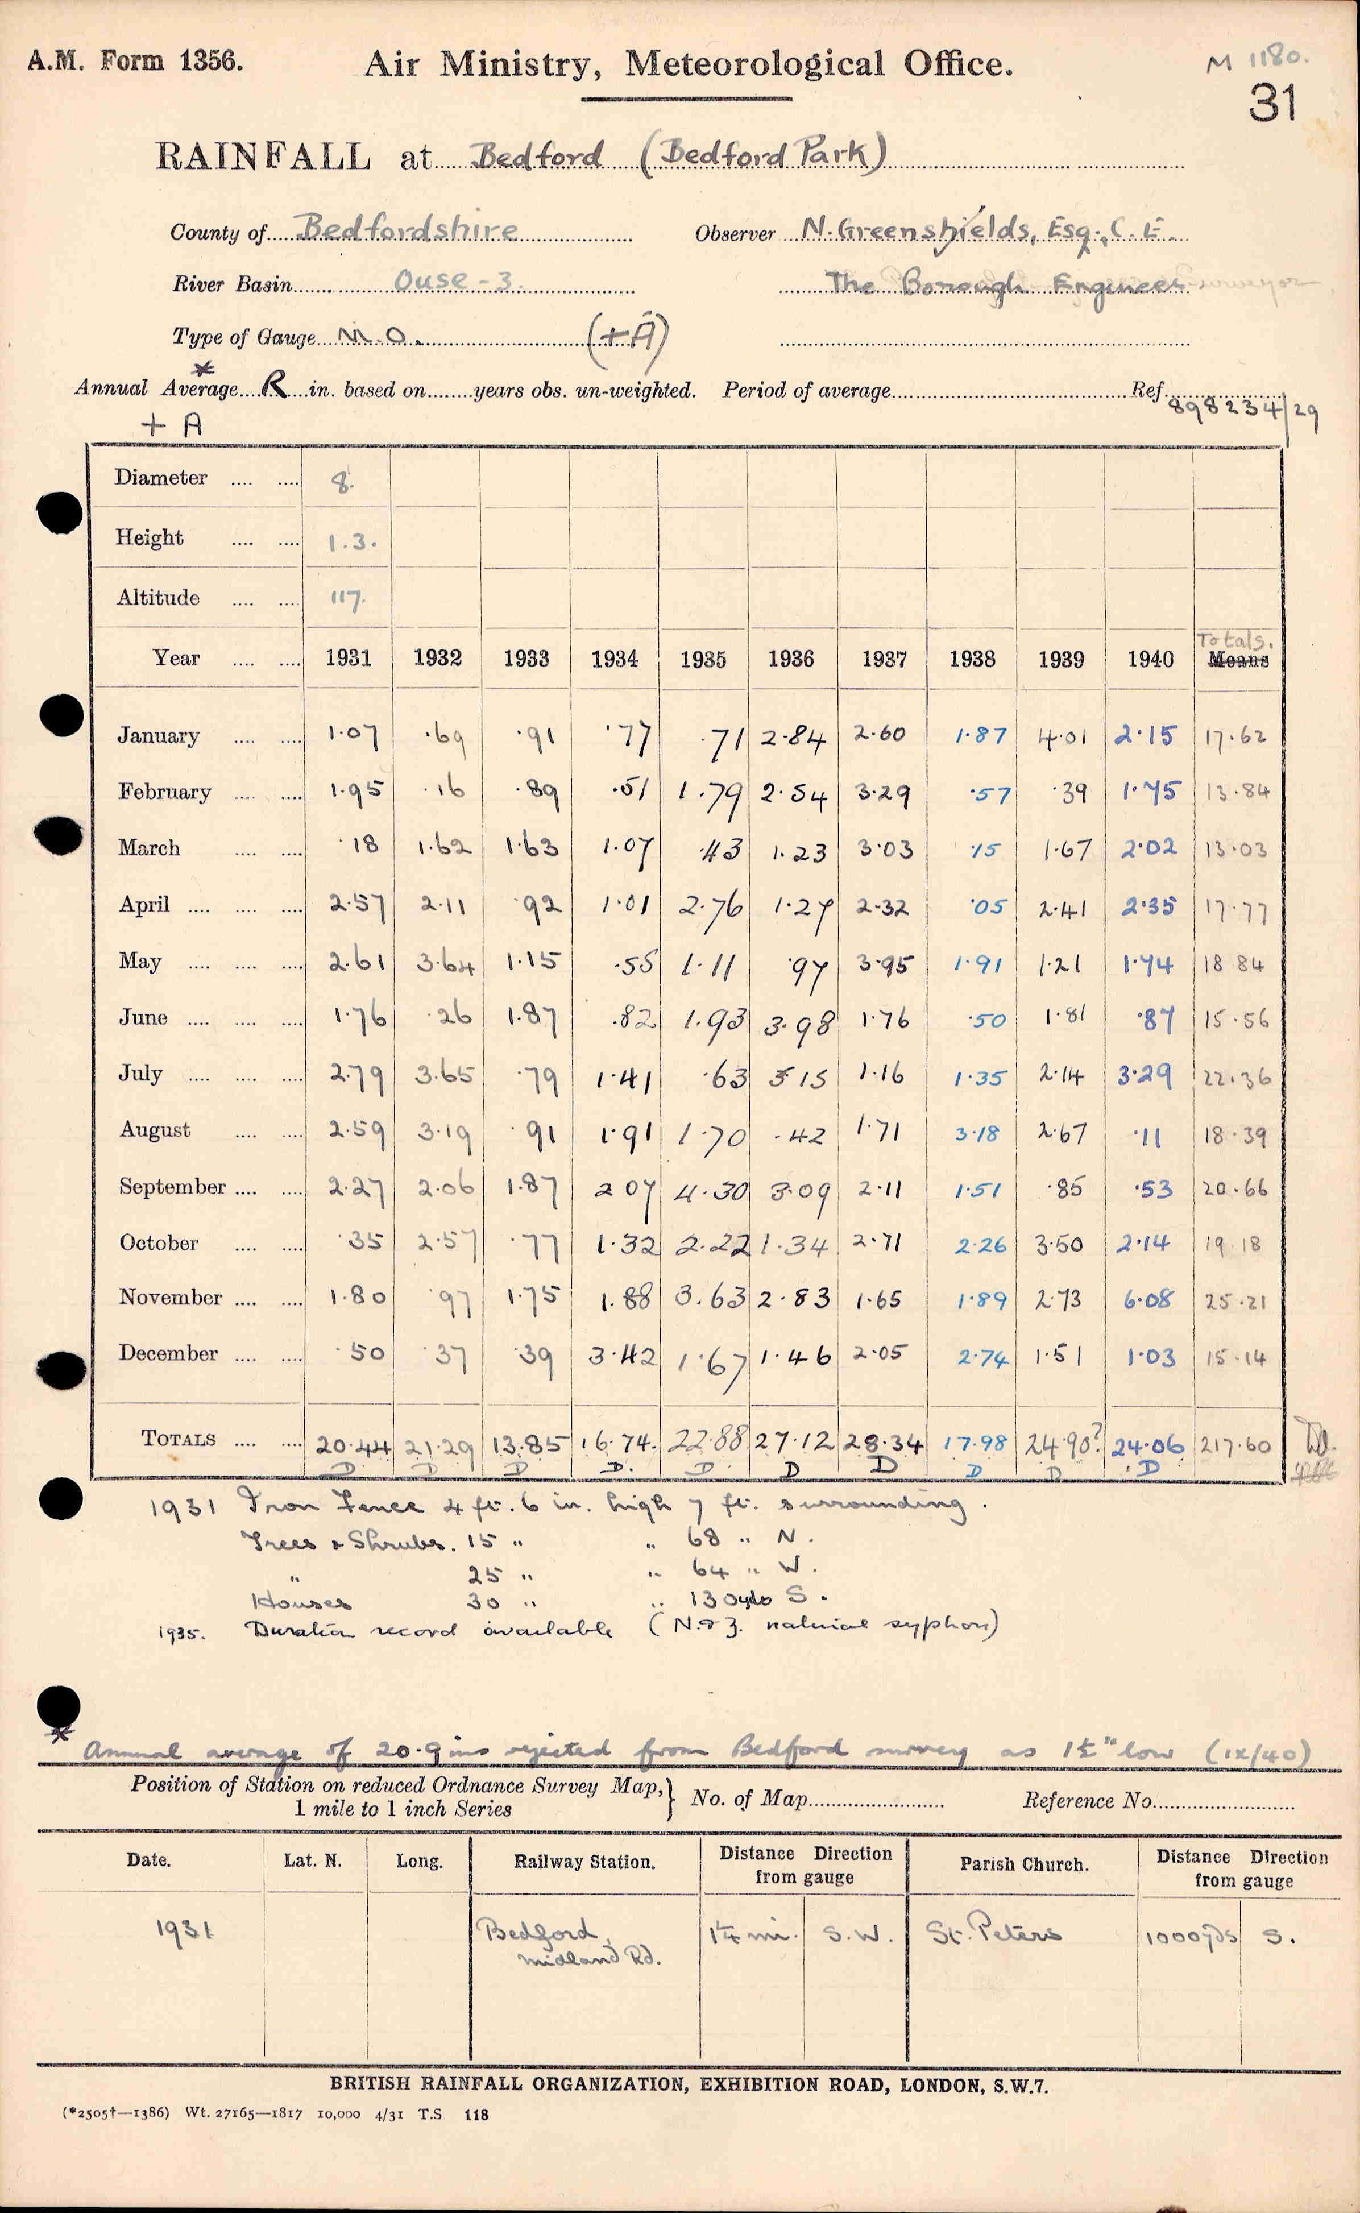 A.M. Form 1356. Air Ministry, Meteorological Office. M 1180.
31
RAINFALL at Bedford (Bedford Park)
County of Bedfordshire Observer N. Greenshields, Esq., C.E.
River Basin Ouse - 3. The Borough Engineer Surveyor
Type of Gauge M.O. (+A)
Annual Average * R in. based on years obs. un-weighted. Period of average Ref 898234/29
+ A
Diameter 8.
Height 1.3.
Altitude 117.
Totals.
Year 1931 1932 1933 1934 1935 1936 1937 1938 1939 1940 Means
January 1.07 .69 .91 .77 .71 2.84 2.60 1.87 4.01 2.15 17.62
February 1.95 .16 .89 .51 1.79 2.54 3.29 .57 .39 1.75 13.84
March .18 1.62 1.63 1.07 .43 1.23 3.03 .15 1.67 2.02 13.03
April 2.57 2.11 .92 1.01 2.76 1.27 2.32 .05 2.41 2.35 17.77
May 2.61 3.64 1.15 .55 1.11 .97 3.95 1.91 1.21 1.74 18 84
June 1.76 .26 1.87 .82 1.93 3.98 1.76 .50 1.81 .87 15.56
July 2.79 3.65 .79 1.41 .63 5 15 1.16 1.35 2.14 3.29 22.36
August 2.59 3.19 .91 1.91 1.70 .42 1.71 3.18 2.67 .11 18.39
September 2.27 2.06 1.87 2 07 4.30 3.09 2.11 1.51 .85 .53 20.66
October .35 2.57 .77 1.32 2.22 1.34 2.71 2.26 3.50 2.14 19 18
November 1.80 .97 1.75 1.88 3.63 2.83 1.65 1.89 2.73 6.08 25.21
December .50 .37 .39 3.42 1.67 1.46 2.05 2.74 1.51 1.03 15.14
TOTALS 20.44 21.29 13.85 16.74. 22.88 27.12 28.34 17.98 24.90? 24.06 217.60
D D D D. D. D D D D D
1931 Iron Fence 4 ft. 6 in. high 7 ft. surrounding.
Trees & Shrubs. 15 " " 68 " N.
" 25 " " 64 " W.
Houses 30 " " 130 yds S.
1935. Duration record available (N. & Z. natural syphon)
* Annual average of 20.9 ins rejected from Bedford survey as 1½" low (ix/40)
Position of Station on reduced Ordnance Survey Map,} No. of Map Reference No.
1 mile to 1 inch Series
Date. Lat. N. Long. Railway Station. Distance Direction from gauge Parish Church. Distance Direction from gauge
1931 Bedford, 1¼ mi. S.W. St. Peters 1000 yds S.
Midland Rd.
BRITISH RAINFALL ORGANIZATION, EXHIBITION ROAD, LONDON, S.W.7.
(*2505†—1386) Wt. 27165—1817 10,000 4/31 T.S 118